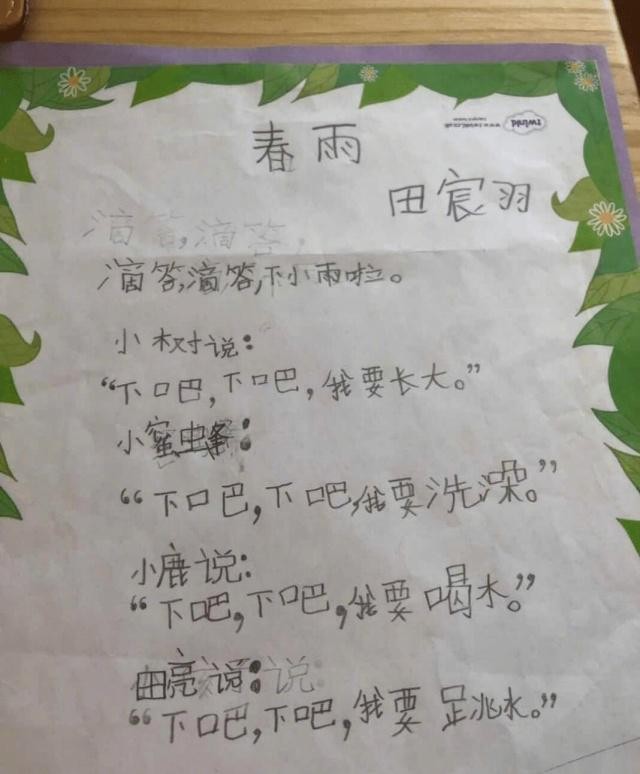 twinkl
www.twinkl.co.uk
春雨
田宸羽
滴答,滴答,
滴答,滴答,下小雨啦。
小树说:
“下吧,下吧,我要长大。”
小蜜蜂:
“下吧,下吧,我要洗澡。”
小鹿说:
“下吧,下吧,我要喝水。”
田亮说:说:
“下吧,下吧,我要跳水。”